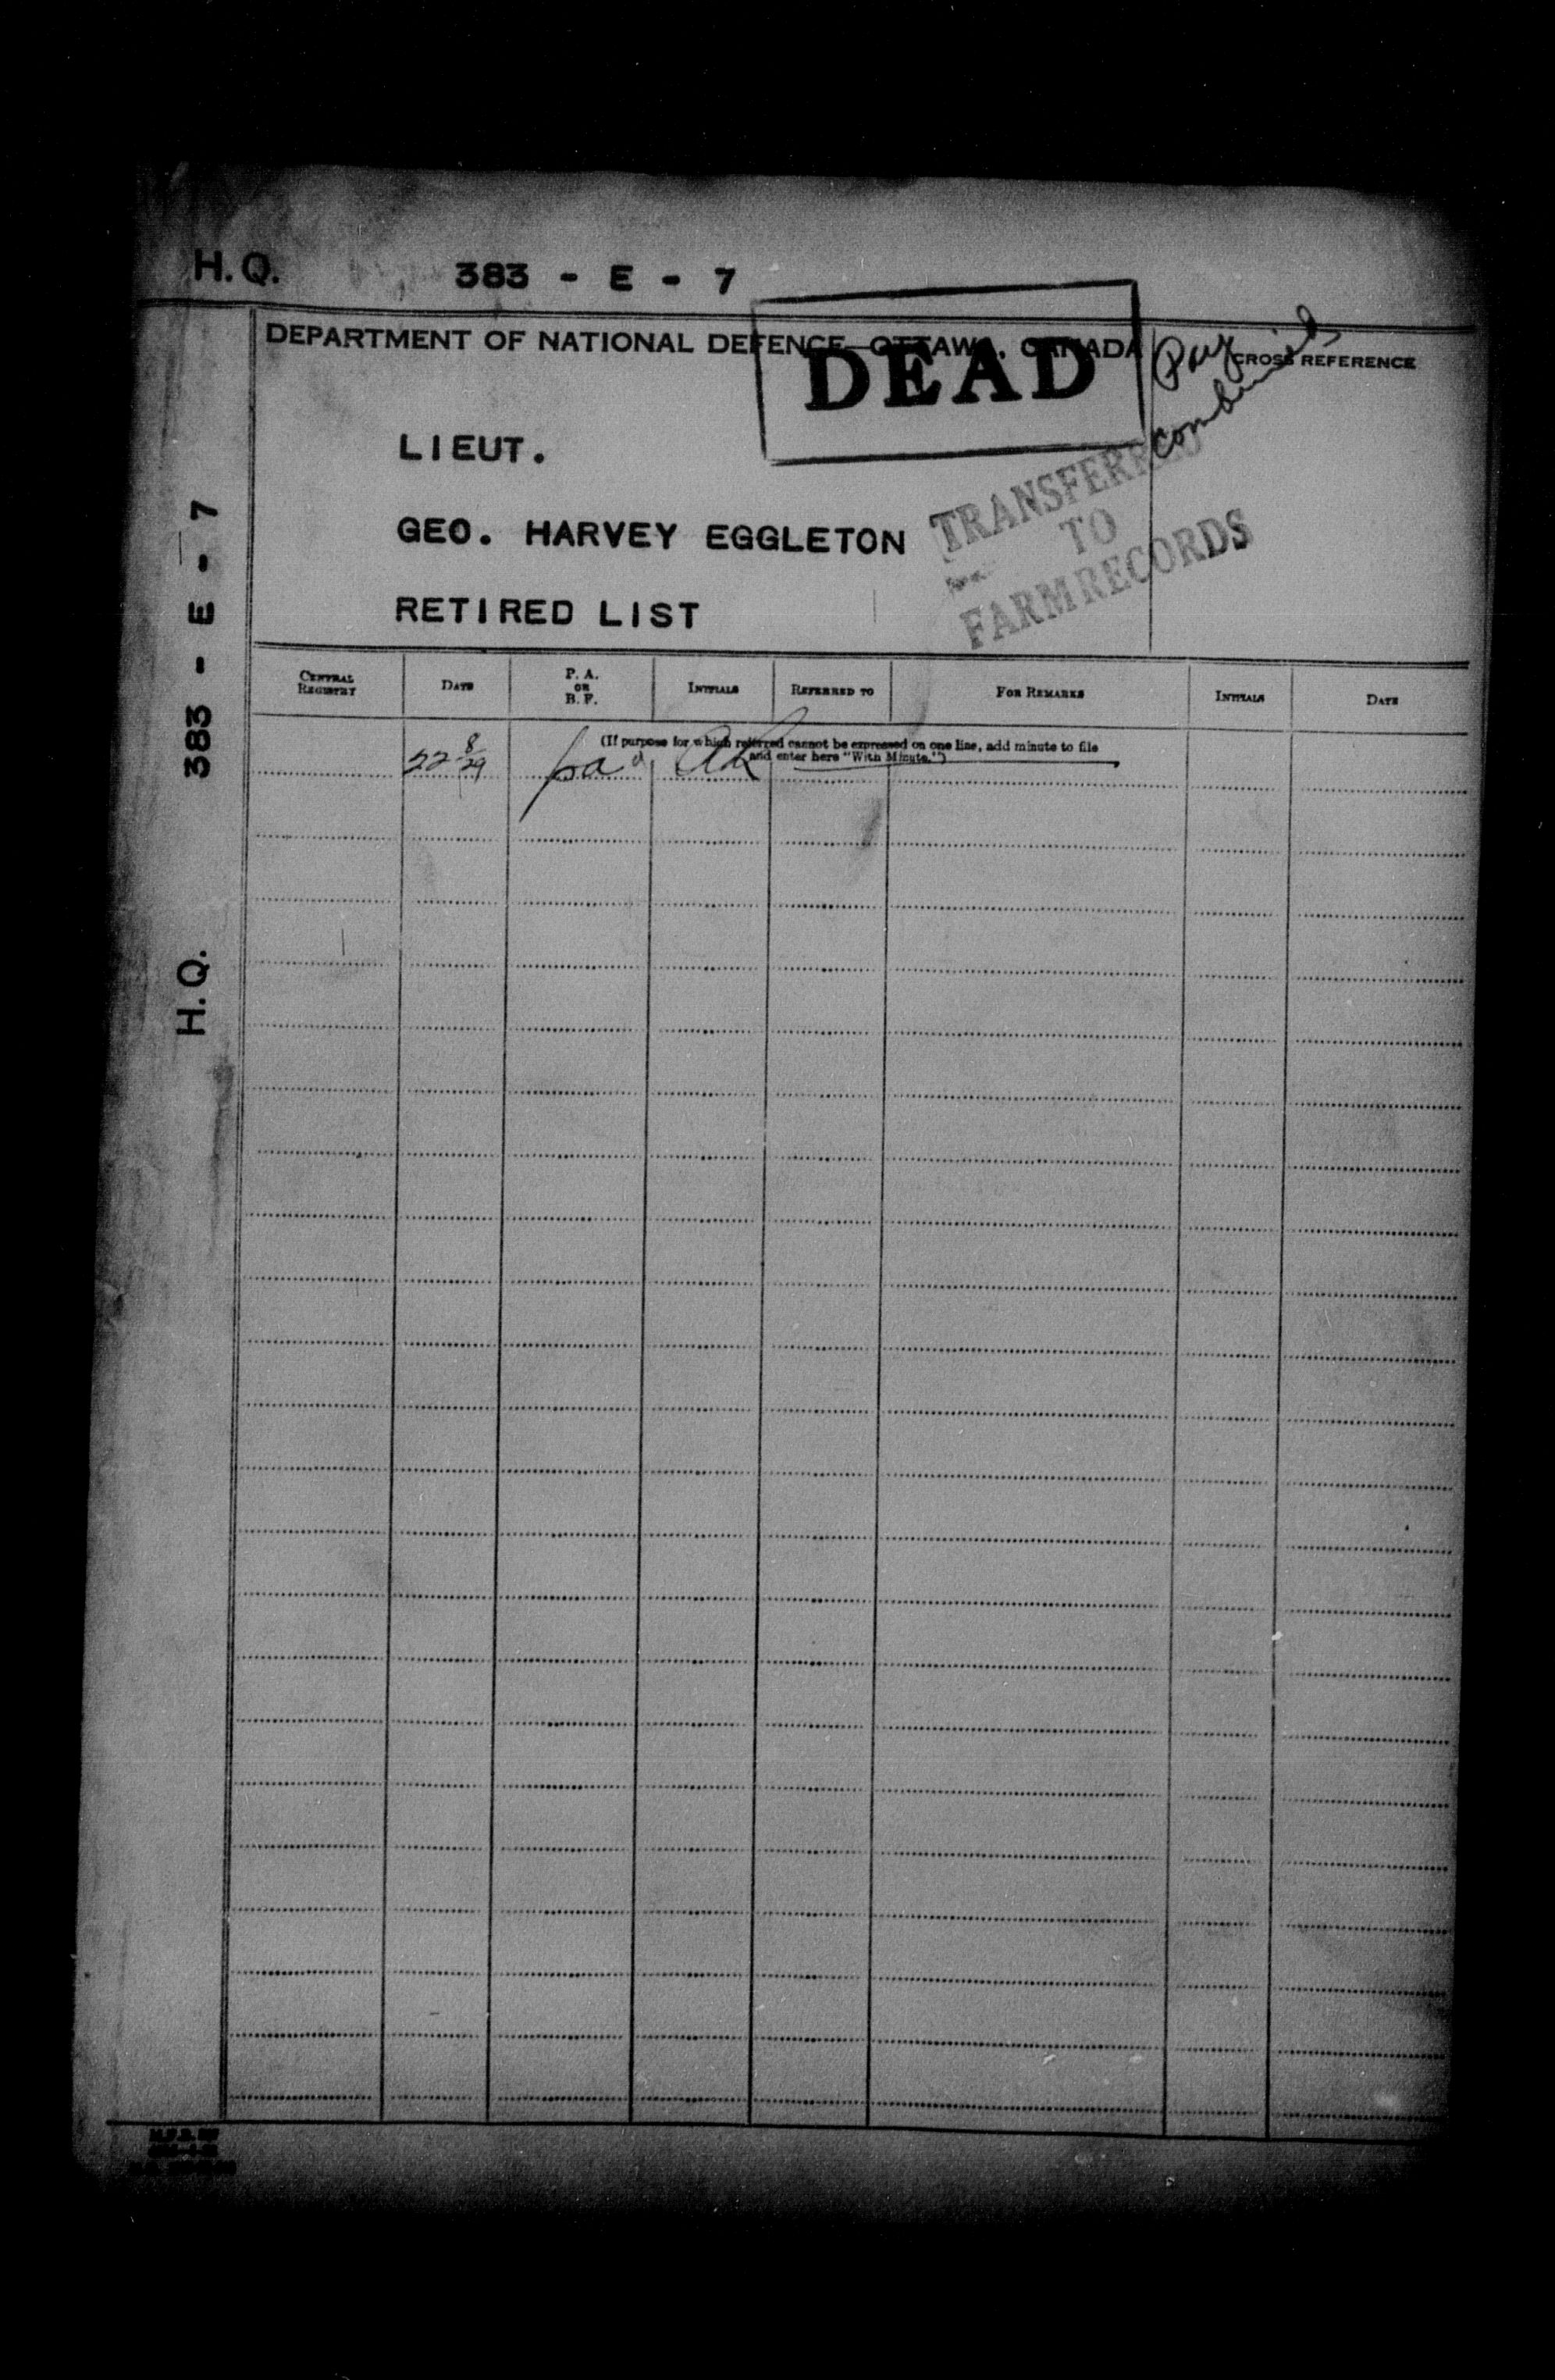 H.Q. 383 - E - 7
DEPARTMENT OF NATIONAL DEFENCE—OTTAWA, CANADA
DEAD
CROSS REFERENCE
Pay
combined
LIEUT.
GEO. HARVEY EGGLETON
RETIRED LIST
TRANSFERRED
TO
FARM RECORDS
H.Q. 383 - E - 7
CENTRAL REGISTRY DATE P. A. OR B. F. INITIALS REFERRED TO FOR REMARKS INITIALS DATE
(If purpose for which referred cannot be expressed on one line, add minute to file
and enter here "With Minute.")
22 8/29 pa